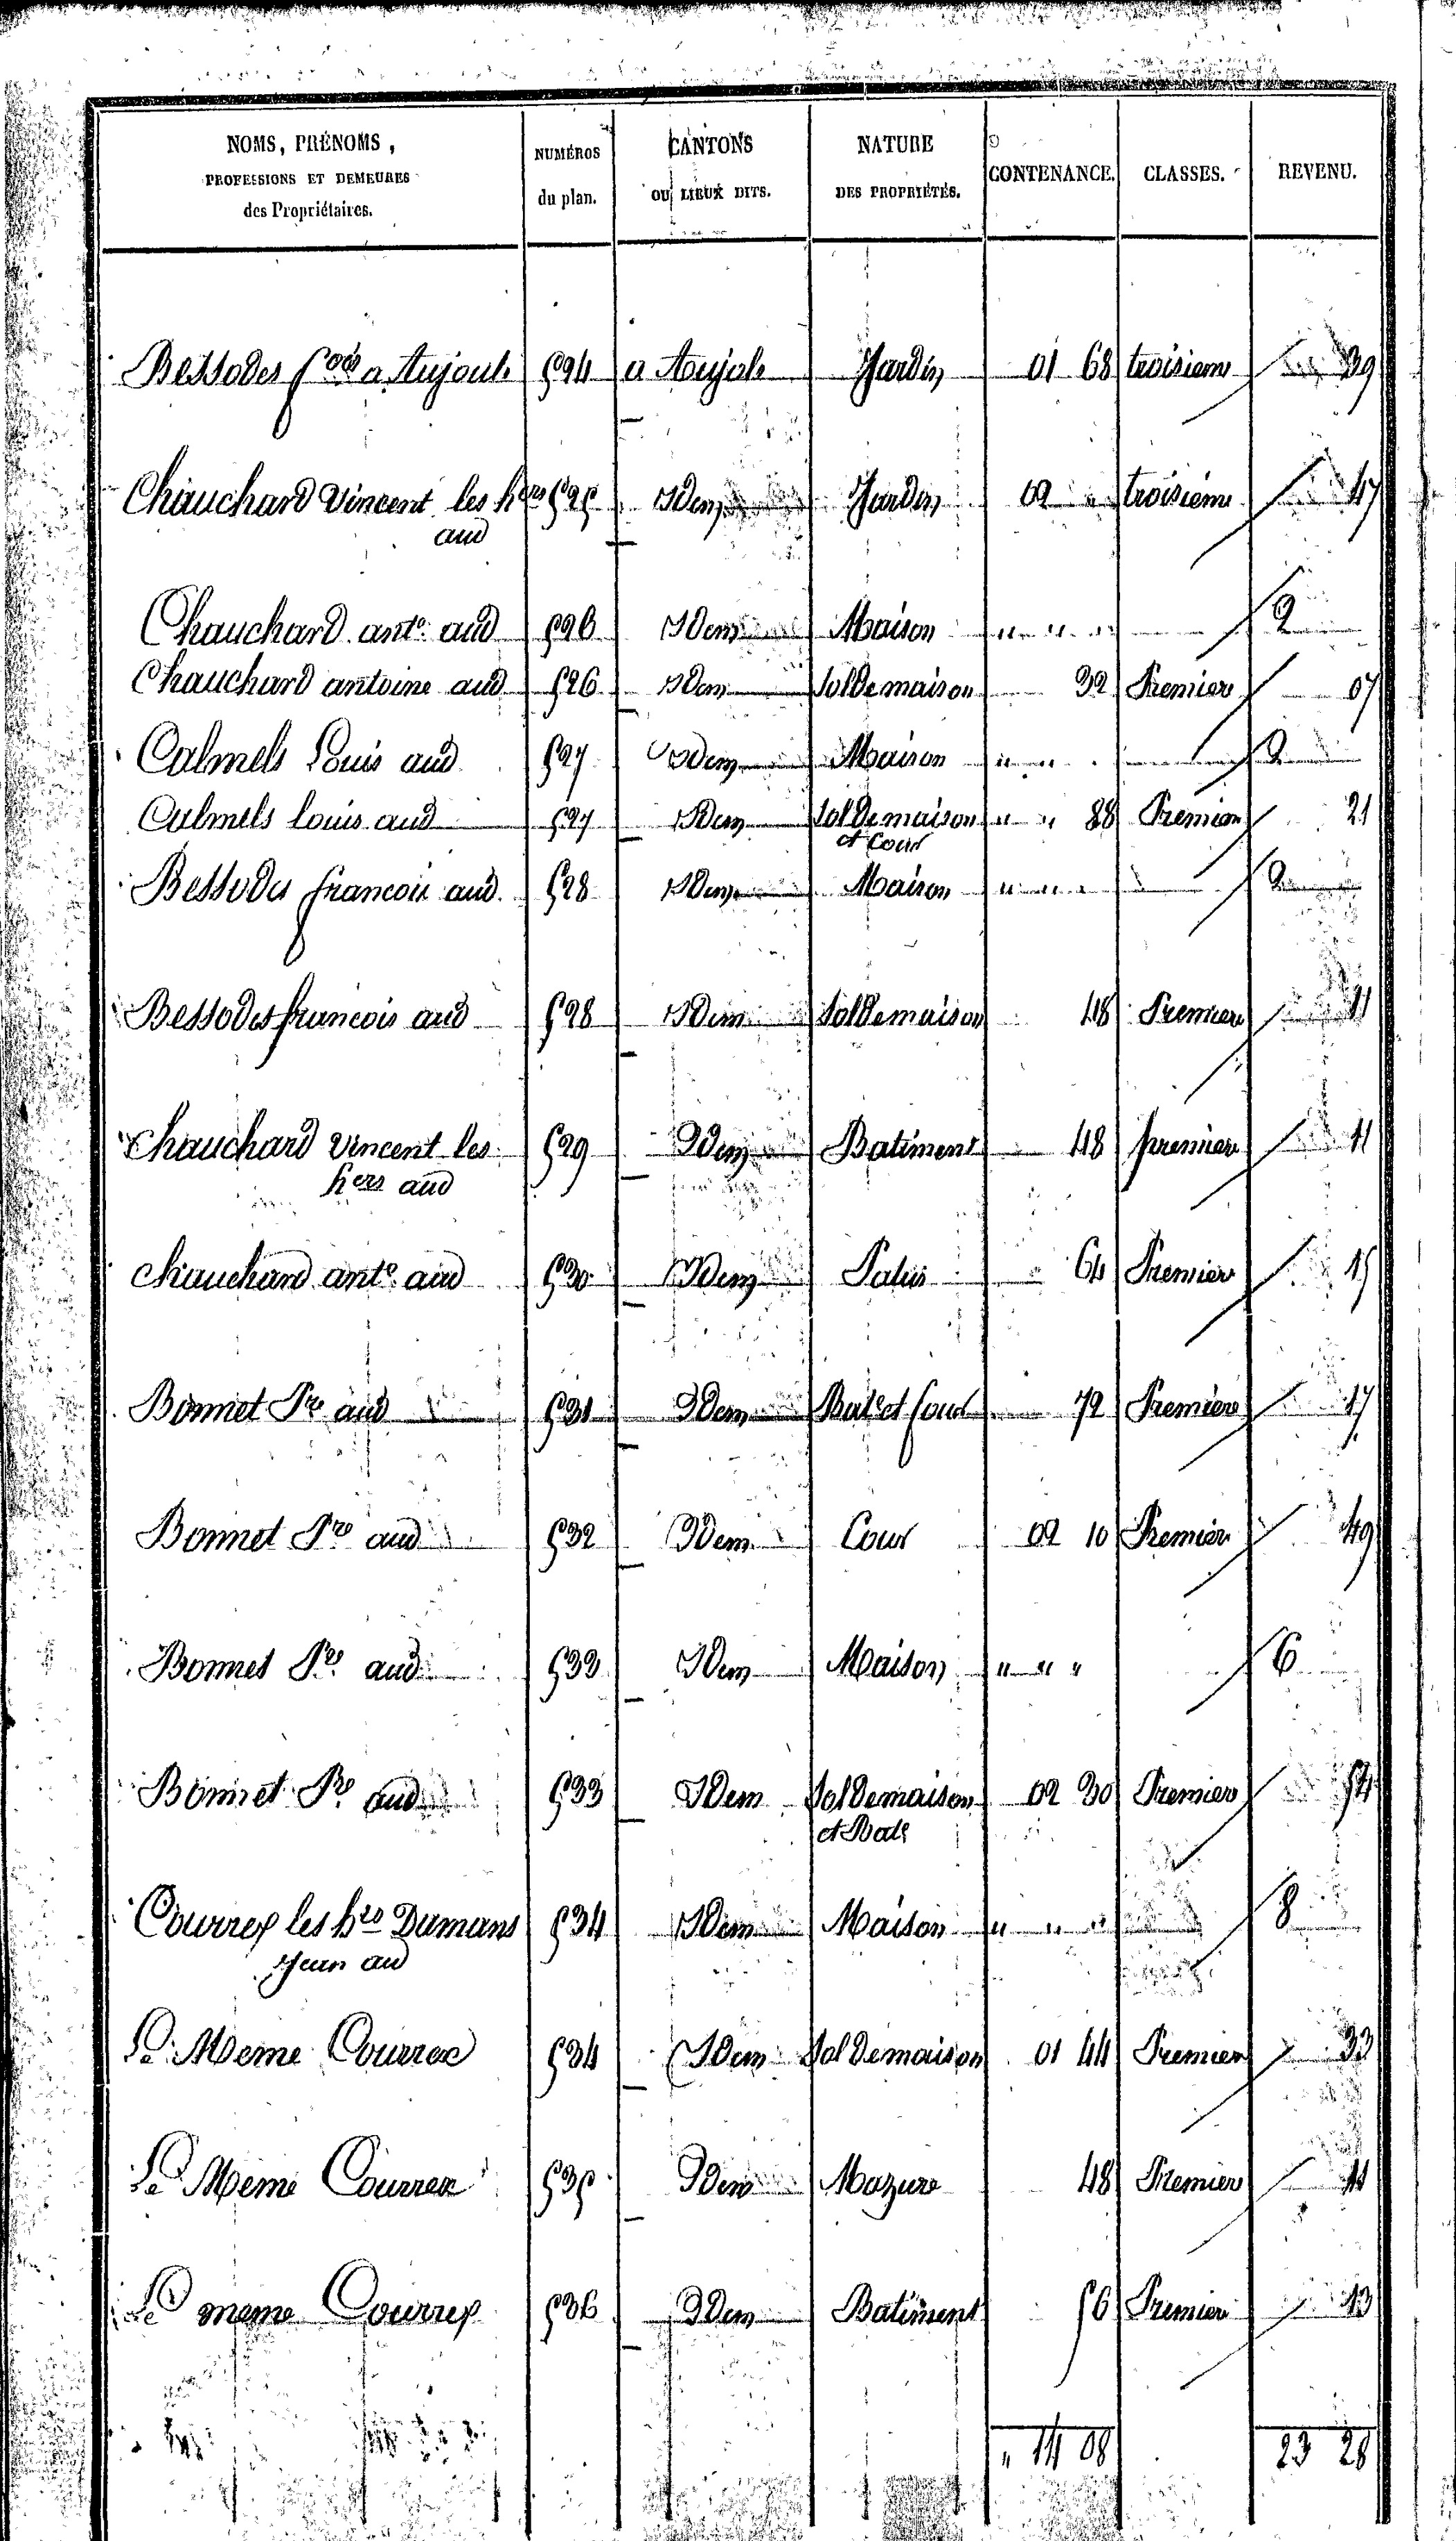 NOMS, PRÉNOMS,
PROFESSIONS ET DEMEURES
des Propriétaires.
NUMÉROS
du plan.
CANTONS
OU LIEUX DITS.
NATURE
DES PROPRIÉTÉS.
CONTENANCE.
CLASSES.
REVENU.
Bessodes fcois a Aujouls 524 a Aujols Jardin 01 68 troisieme 39
Chauchard Vincent les hers 525 Idem Jardin 02 " troisieme 47
aud
Chauchard ante. aud 526 Idem Maison " " " 2
Chauchard antoine aud 526 Idem Sol de maison 32 Premiere 07
Calmels Louis aud 527 Idem Maison " " 2
Calmels louis aud 527 Idem Sol de maison " " 88 Premiere 21
et Cour
Bessodes francois aud 528 Idem Maison " " " 2
Bessodes francois aud 528 Idem Sol de maison 48 Premiere 11
Chauchard Vincent les 529 Idem Batiment 48 premiere 11
hers aud
Chauchard ante. aud 530 Idem Patus 64 Premiere 15
Bonnet Pre aud 531 Idem Bat et Cour 72 Premiere 17
Bonnet Pre aud 532 Idem Cour 02 10 Premiere 49
Bonnet Pre aud 533 Idem Maison " " " 6
Bonnet Pre aud 533 Idem Sol de maison 02 30 Premiere 54
et Bat
Courrex les hrs Dumans 534 Idem Maison " " " 8
Jean au
Le Meme Courrex 534 Idem Sol de maison 01 44 Premiere 33
Le Meme Courrex 535 Idem Mazure 48 Premiere 11
Le meme Courrex 536 Idem Batiment 56 Premiere 13
" 14 08 23 28